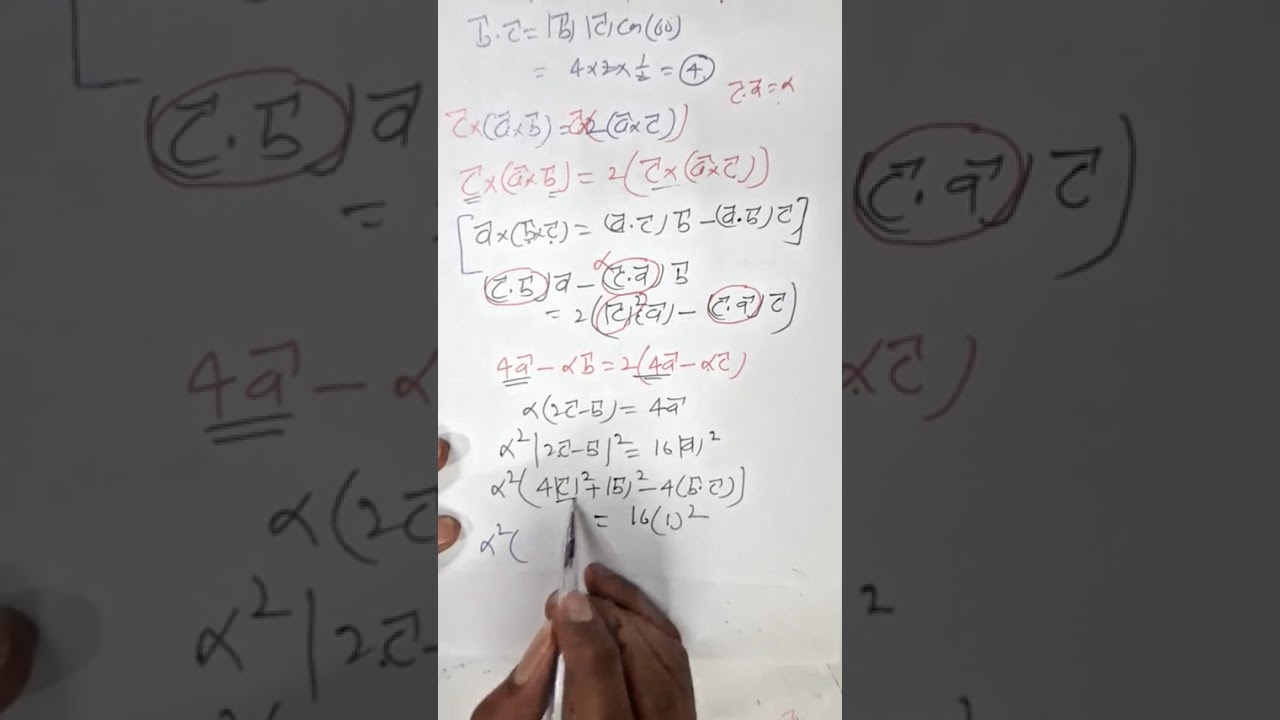 b⃗.c⃗ = |b⃗| |c⃗| cos(60)
= 4×2×½ = 4
c⃗.a⃗ = α
c⃗×(a⃗×b⃗) = 2(a⃗×c⃗)
c⃗×(a⃗×b⃗) = 2(c⃗×(a⃗×c⃗))
[a⃗×(b⃗×c⃗) = (a⃗.c⃗) b⃗ – (a⃗.b⃗) c⃗]
(c⃗.b⃗) a⃗ – (c⃗.a⃗) b⃗
α
= 2(|c⃗|² a⃗) – (c⃗.a⃗) c⃗)
4a⃗ – αb⃗ = 2(4a⃗ – αc⃗)
α(2c⃗–b⃗) = 4a⃗
α²|2c⃗–b⃗|² = 16|a⃗|²
α²(4|c⃗|²+|b⃗|²–4(b⃗.c⃗))
= 16(1)²
α²(